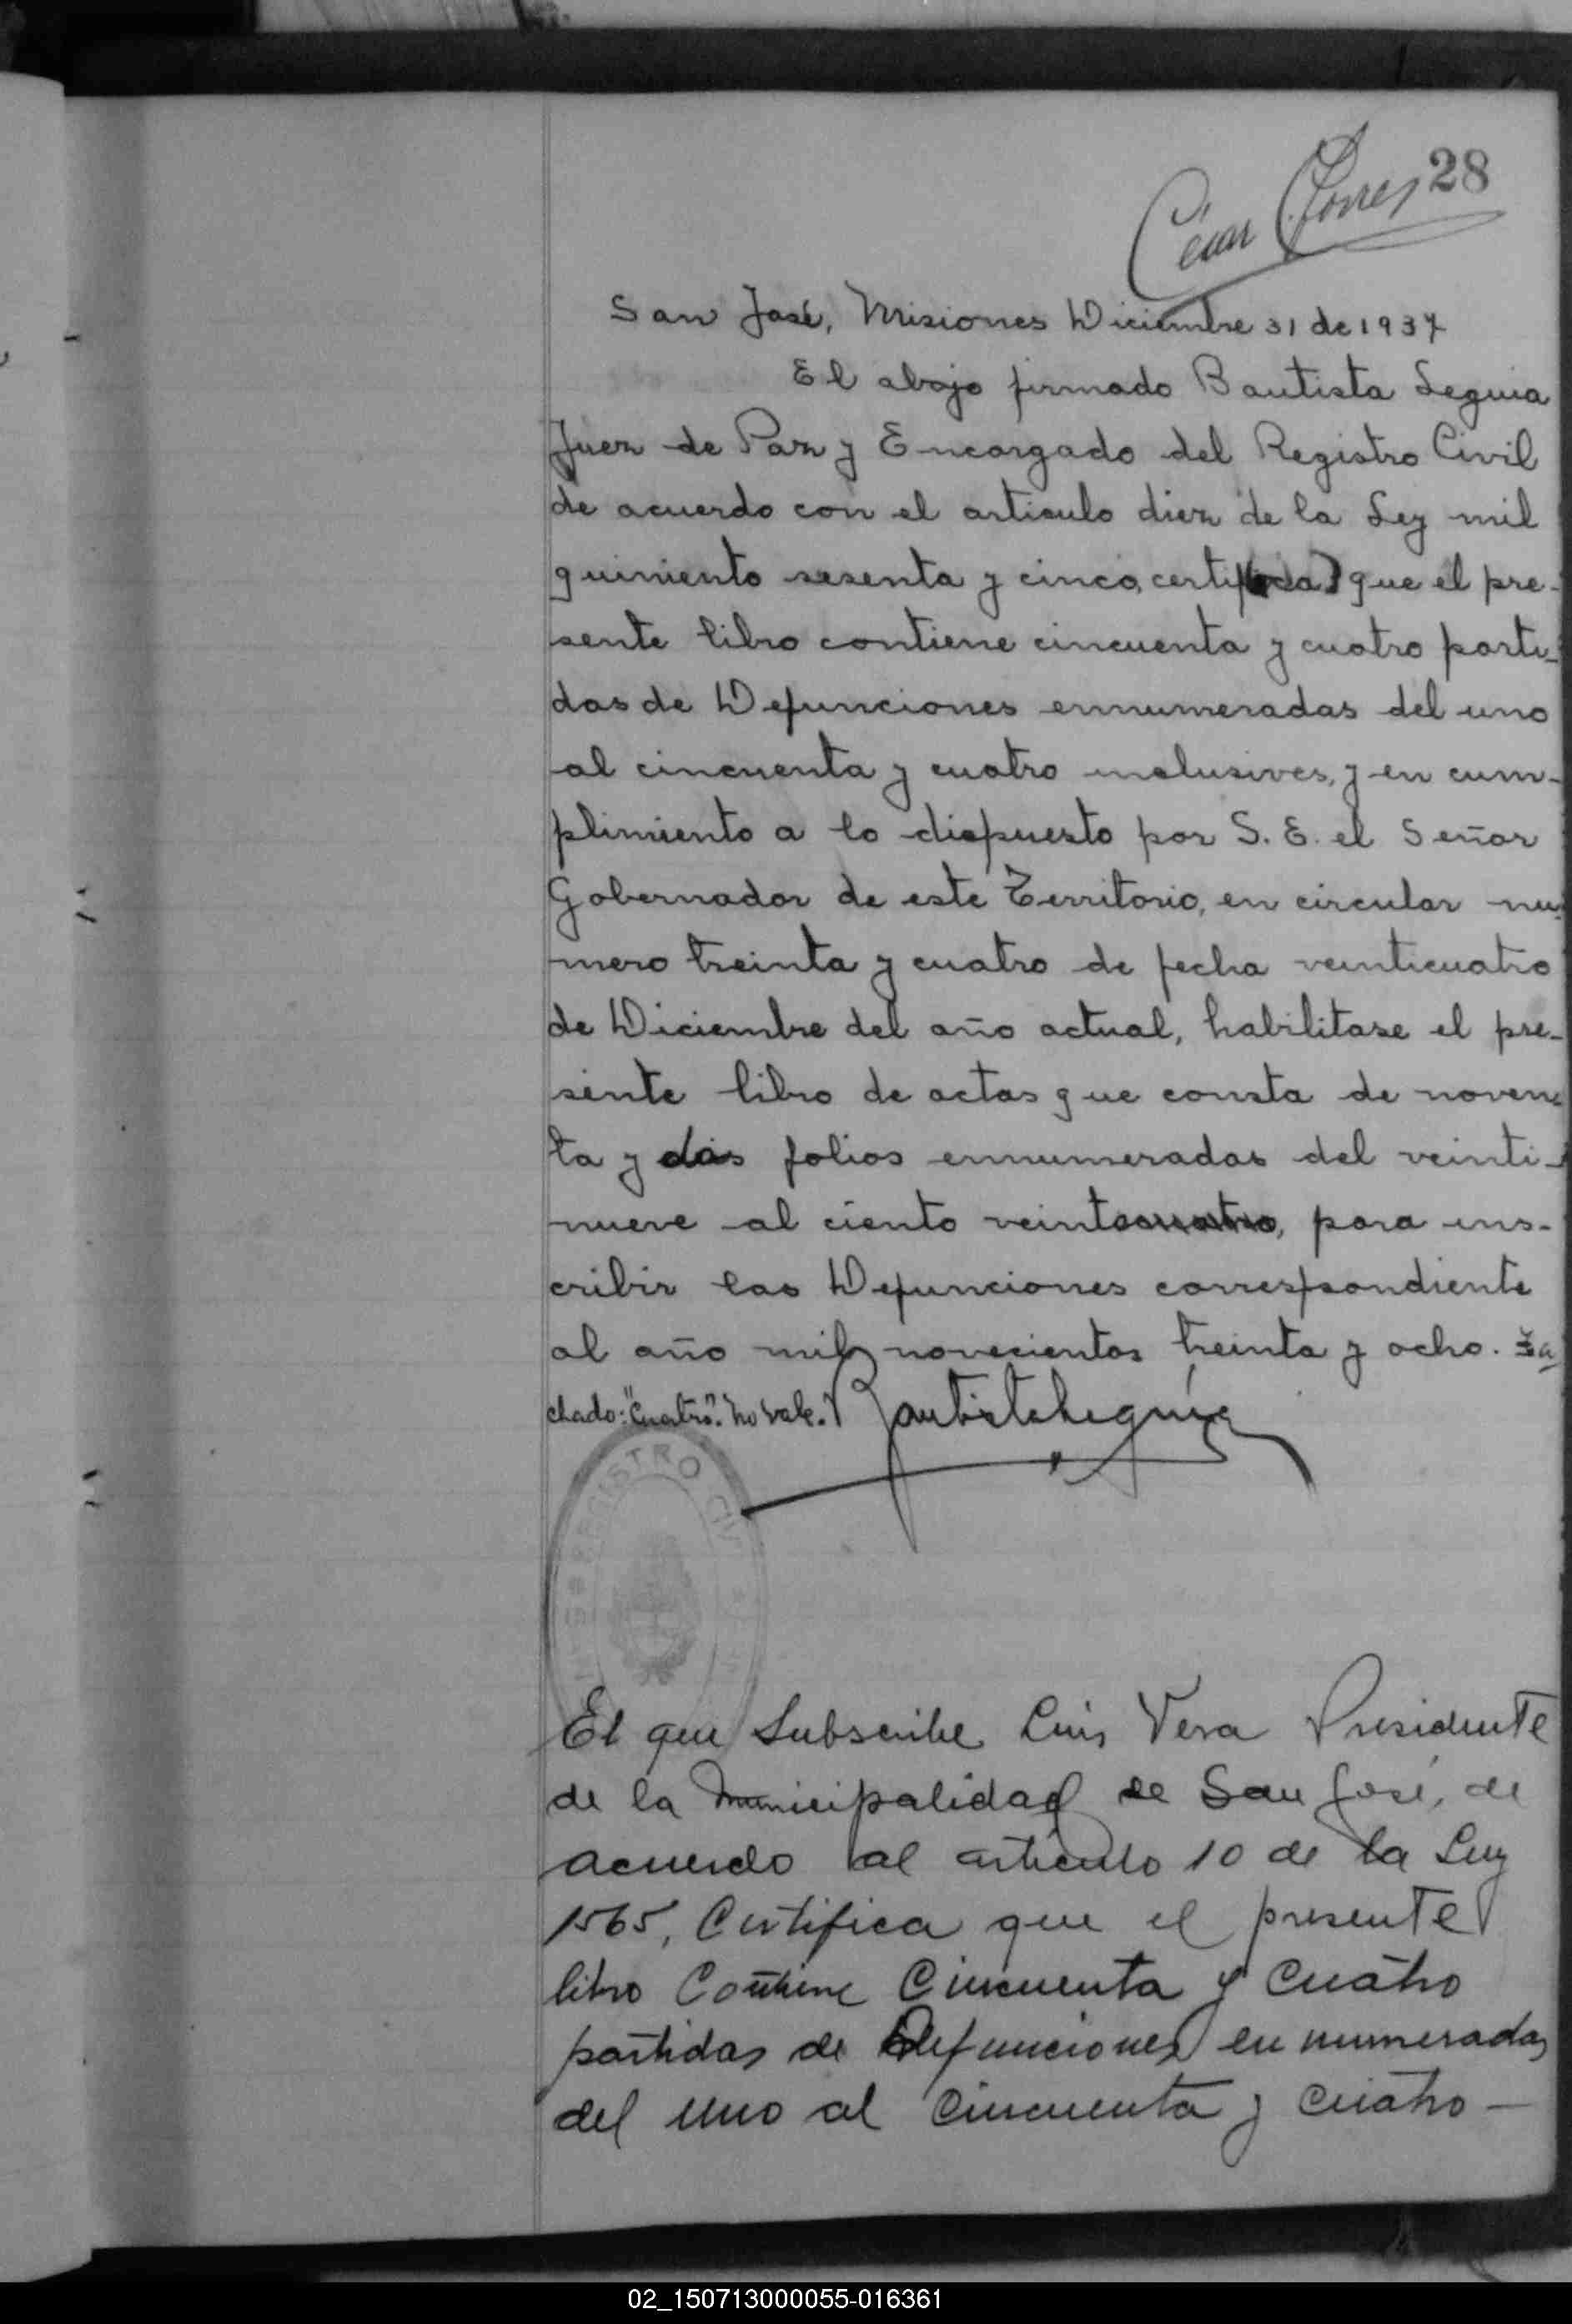 28
César Torres
San José, Misiones Diciembre 31 de 1937
El abajo firmado Bautista Leguia
Juez de Paz y Encargado del Registro Civil
de acuerdo con el articulo diez de la Ley mil
quiniento sesenta y cinco, certifica, que el pre-
sente libro contiene cincuenta y cuatro parti-
das de Defunciones ennumeradas del uno
al cincuenta y cuatro inclusives, y en cum-
plimiento a lo dispuesto por S. E. el Señor
Gobernador de este Territorio, en circular nu-
mero treinta y cuatro de fecha veinticuatro
de Diciembre del año actual, habilitase el pre-
sente libro de actas que consta de noven-
ta y dos folios ennumeradas del veinti-
nueve al ciento veintecuatro, para ins-
cribir las Defunciones correspondiente
al año mil novecientos treinta y ocho. Ta
chado: "Cuatro". No vale.
Bautista Leguia
REGISTRO CIV
El que Subscribe Luis Vera Presidente
de la Municipalidad de San José, de
acuerdo al artículo 10 de la Ley
1565, Certifica que el presente
libro Contiene Cincuenta y Cuatro
partidas de Defunciones enumeradas
del uno al Cincuenta y Cuatro -
02_150713000055-016361